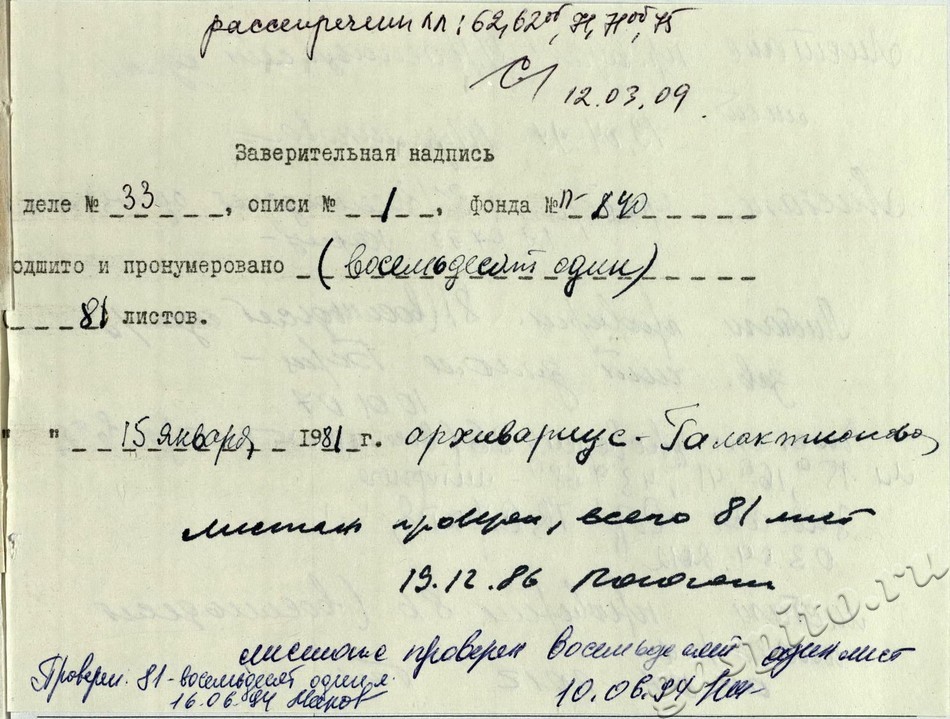 рассекречены лл: 62, 62об, 71, 71об, 75
12.03.09
Заверительная надпись
деле № 33, описи № 1, фонда № П-840
одшито и пронумеровано (восемьдесят один)
81 листов.
" " 15 января 1981 г. архивариус - Галактионова
листаж проверен, всего 81 лист
19.12.86
листаже проверен восемьдесят один лист
Проверен. 81 - восемьдесят один л.
10.06.94
16.06.94